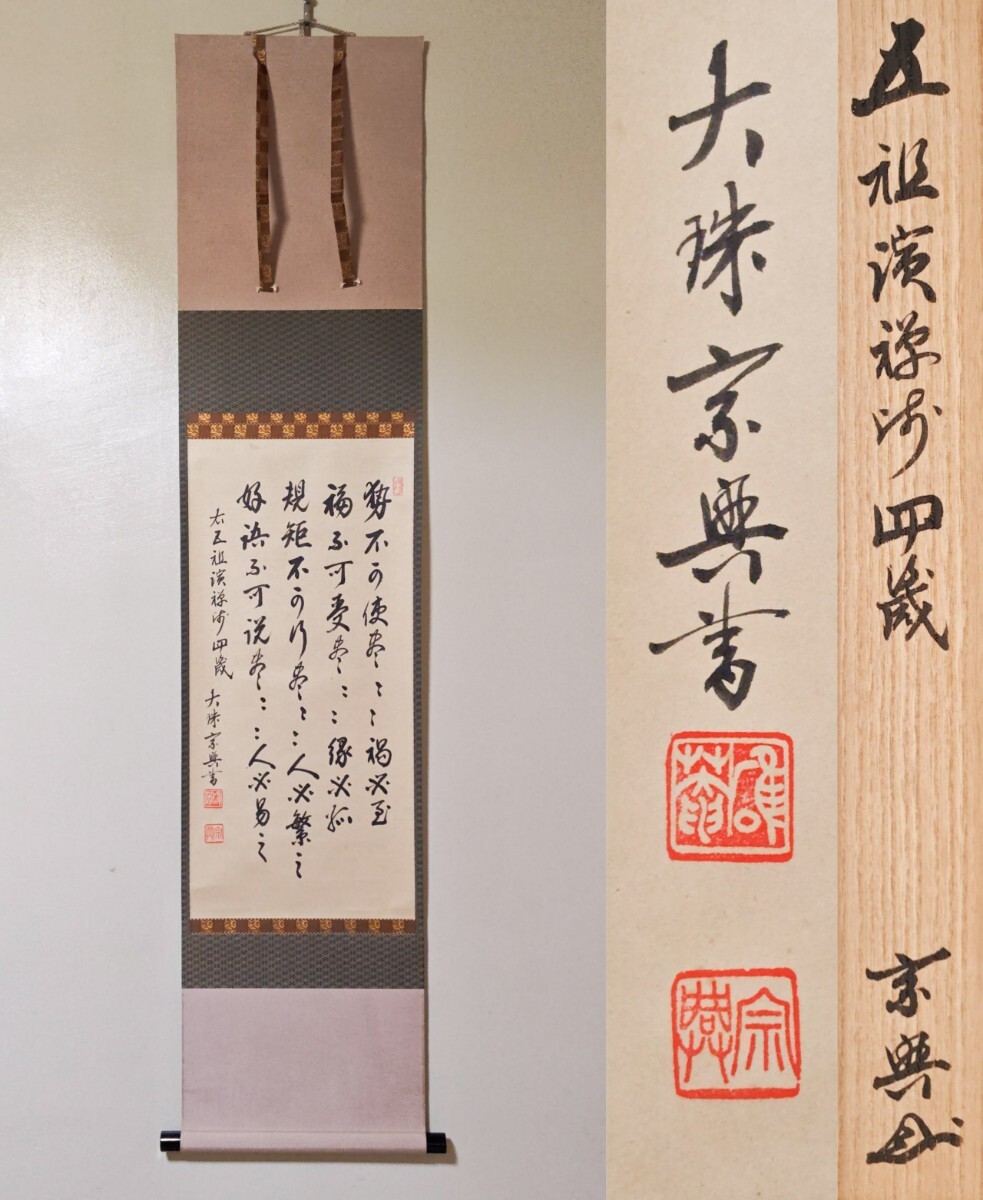 勢不可使尽〻〻禍必至
福不可受尽〻〻縁必孤
規矩不可行尽〻〻人必繁之
好語不可説尽〻〻人必易之
右五祖演禅師四
大珠宗興書
大珠宗興書
宗興
五祖演禅師四
宗興